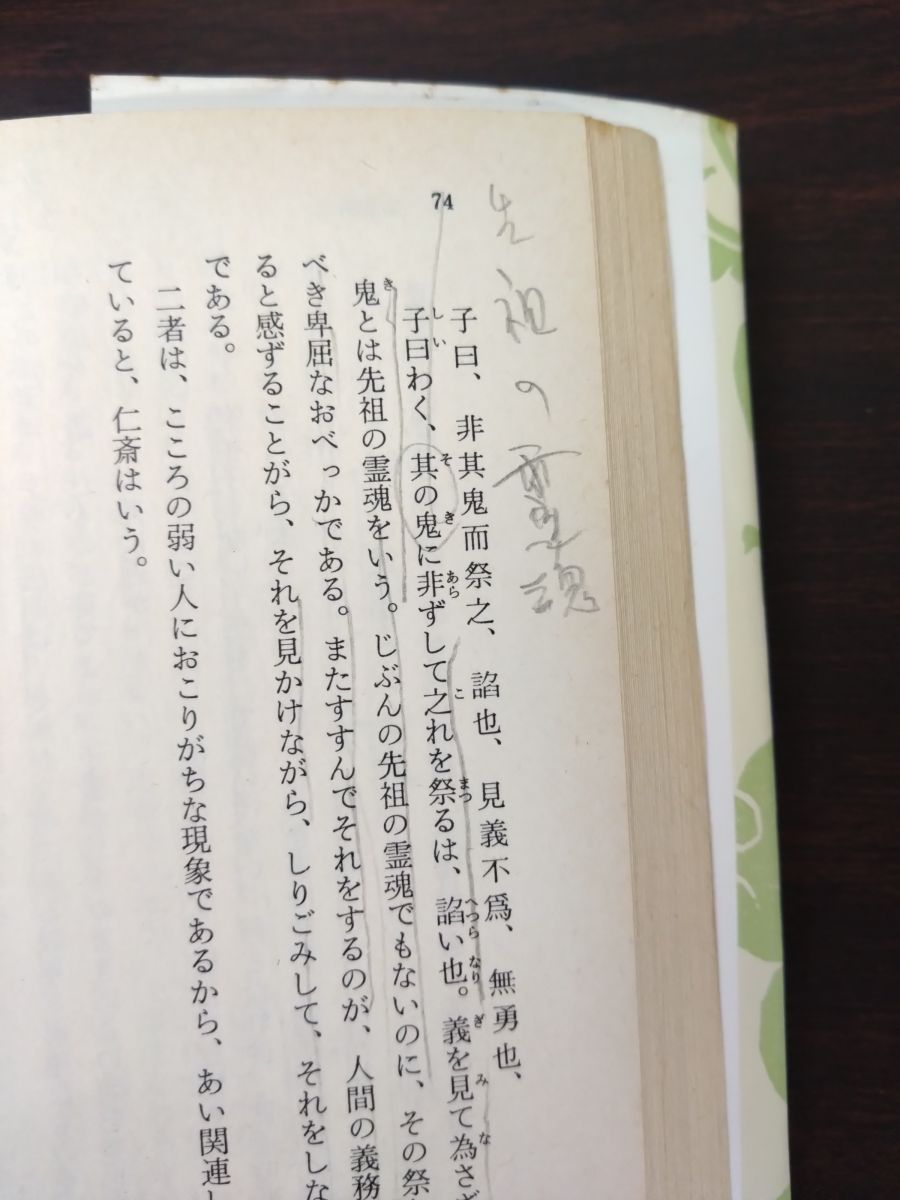 74
先祖の霊魂
子曰、非其鬼而祭之、諂也、見義不爲、無勇也、
子曰わく、其の鬼に非ずして之れを祭るは、諂い也。義を見て為さざ
鬼とは先祖の霊魂をいう。じぶんの先祖の霊魂でもないのに、その祭
べき卑屈なおべっかである。またすすんでそれをするのが、人間の義務
ると感ずることがら、それを見かけながら、しりごみして、それをしな
である。
二者は、こころの弱い人におこりがちな現象であるから、あい関連し
ていると、仁斎はいう。